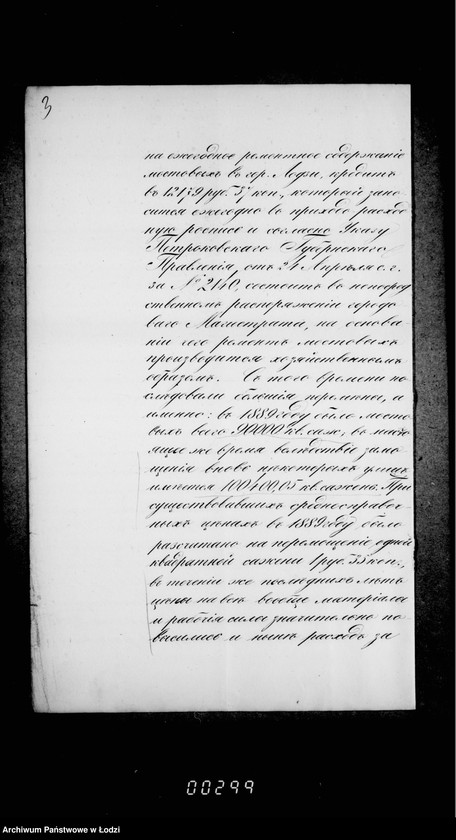 3
на ежегодное ремонтное содержаніе
мостовыхъ въ гор. Лодзи, кредитъ
въ руб. коп., который зано
сится ежегодно въ приходо расход
ную роспись и согласно Указу
Петроковскаго Губернскаго
Правленія, отъ 24 Апрѣля с. г.
за № 2140 состоитъ въ непосред
ственномъ распоряженіи городо
ваго Магистрата, на основа-
ніи чего ремонтъ мостовыхъ
производится хозяйственнымъ
образомъ. Съ того времени по
слѣдовали большія перемѣны, а
именно: въ 1889 году было мосто
выхъ всего 90000 кв. саж., въ насто
ящее же время вслѣдствіе замо
щенія вновь нѣкоторыхъ улицъ
имѣется 100400,05 кв. сажень. При
существовавшихъ среднесправоч-
ныхъ цѣнахъ въ 1889 году было
разсчитано на перемощеніе одной
квадратной сажени 1 руб. 33 коп.,
въ теченіи же послѣднихъ лѣтъ
цѣны на всѣ вообще матеріалы
и рабочія силы значительно по
высились и нынѣ расходъ за
00299
Archiwum Państwowe w Łodzi